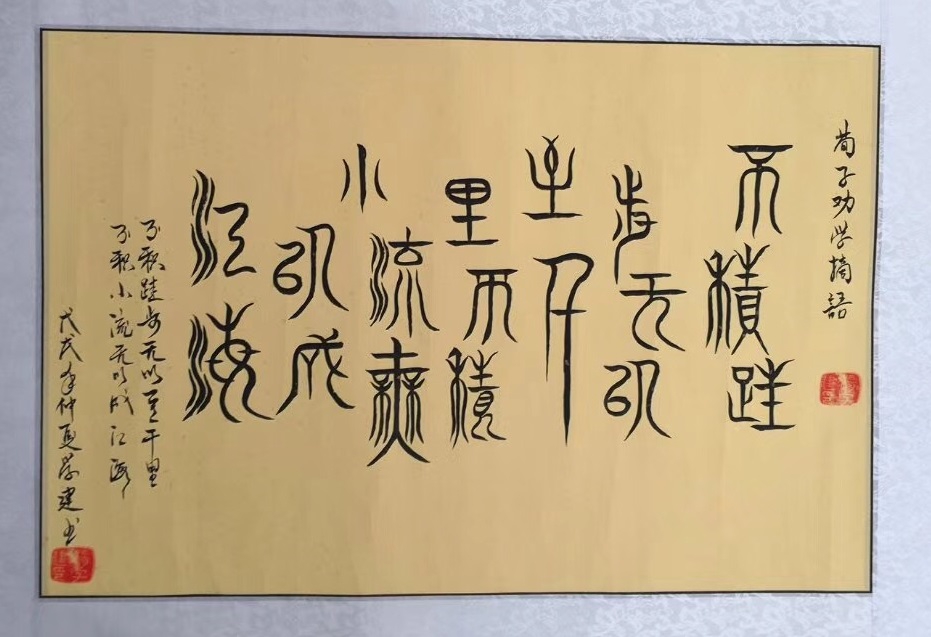 荀子劝学摘语
不積跬
步无以
至千
里不積
小流無
以成
江海
不积跬步无以至千里
不积小流无以成江海
戊戌年仲夏学建书